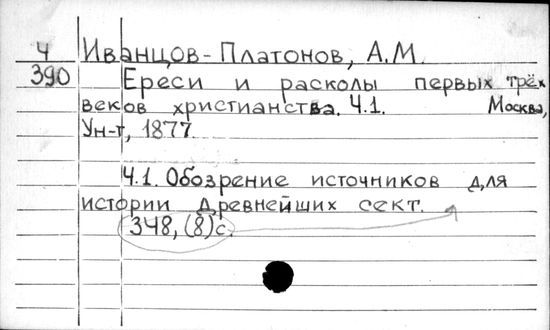 Ч Иванцов-Платонов, А.М.
390 Ереси и расколы первых трёх
веков христианства. Ч.1. Москва,
Ун-т, 1877
Ч.1. Обозрение источников для
истории древнейших сект.
348, (8)с.